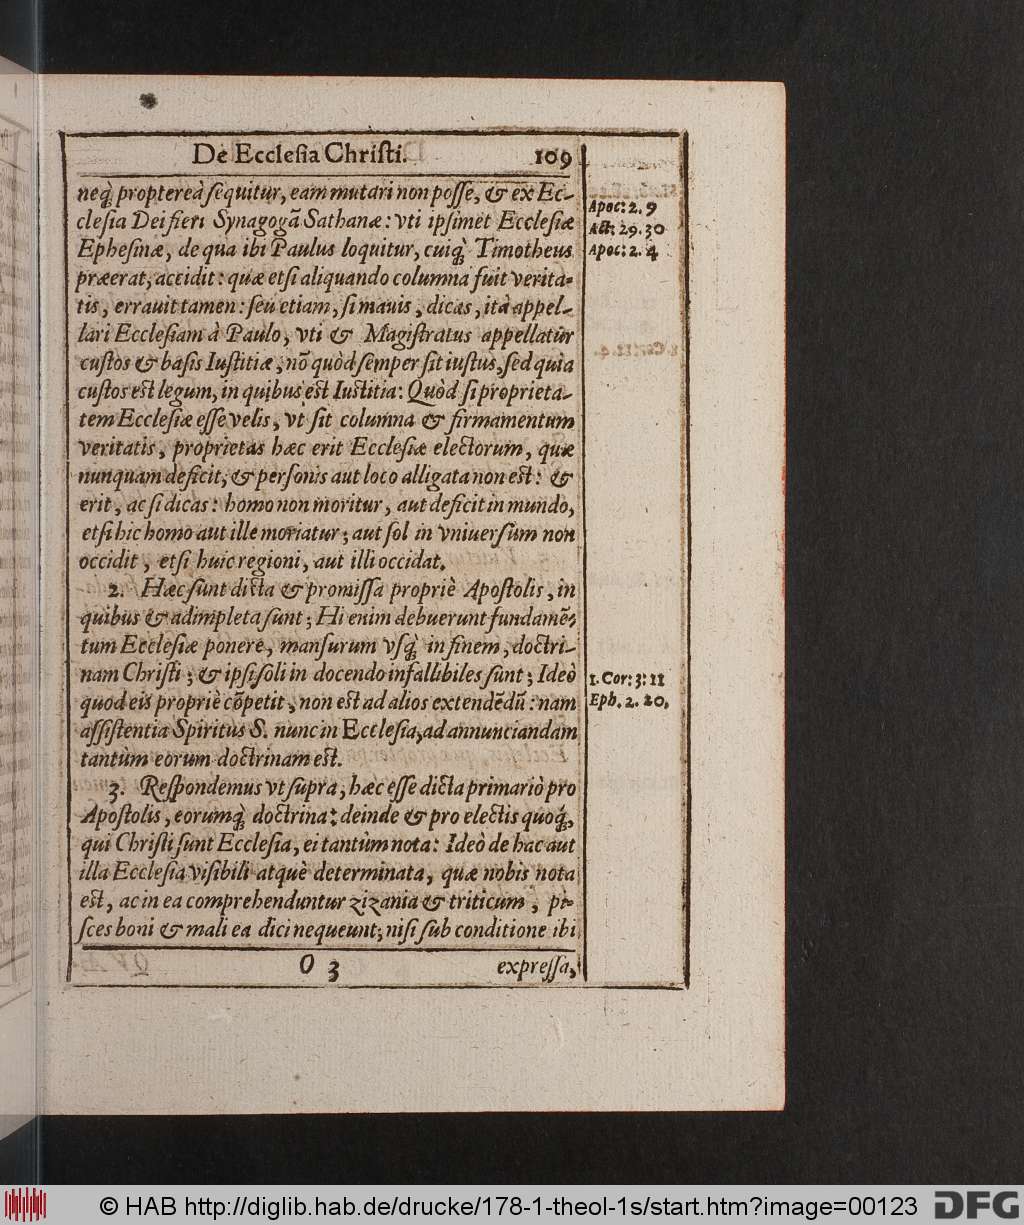 De Ecclesia Christi. 109
neq; propterea sequitur, eam mutari non posse, & ex Ec-
clesia Dei fieri Synagogã Sathanæ: vti ipsimet Ecclesiæ
Ephesinæ, de qua ibi Paulus loquitur, cuiq; Timotheus
præerat, accidit: quæ etsi aliquando columna fuit verita-
tis, errauit tamen: seu etiam, si mauis, dicas, ità appel-
lari Ecclesiam à Paulo, vti & Magistratus appellatur
custos & basis Iustitiæ, nõ quòd semper sit iustus, sed quia
custos est legum, in quibus est Iustitia: Quòd si proprieta-
tem Ecclesiæ esse velis, vt sit columna & firmamentum
veritatis, proprietas hæc erit Ecclesiæ electorum, quæ
nunquam deficit, & personis aut loco alligata non est: &
erit, ac si dicas: homo non moritur, aut deficit in mundo,
etsi hic homo aut ille moriatur; aut sol in vniuersum non
occidit, etsi huic regioni, aut illi occidat.
2. Hæc sunt dicta & promissa propriè Apostolis, in
quibus & adimpleta sunt; Hi enim debuerunt fundamẽ-
tum Ecclesiæ ponere, mansurum vsq; in finem, doctri-
nam Christi; & ipsi soli in docendo infallibiles sunt; Ideò
quod eis propriè cõpetit, non est ad alios extendẽdũ: nam
assistentia Spiritus S. nunc in Ecclesia, ad annunciandam
tantùm eorum doctrinam est.
3. Respondemus vt supra, hæc esse dicta primariò pro
Apostolis, eorumq; doctrina: deinde & pro electis quoq;,
qui Christi sunt Ecclesia, ei tantùm nota: Ideò de hac aut
illa Ecclesia visibili atquè determinata, quæ nobis nota
est, ac in ea comprehenduntur zizania & triticum, pi-
sces boni & mali ea dici nequeunt; nisi sub conditione ibi
O 3 expressa,
Apoc: 2. 9
Act: 29. 30
Apoc: 2. 4
1. Cor: 3: 11
Eph. 2. 20,
© HAB http://diglib.hab.de/drucke/178-1-theol-1s/start.htm?image=00123
DFG